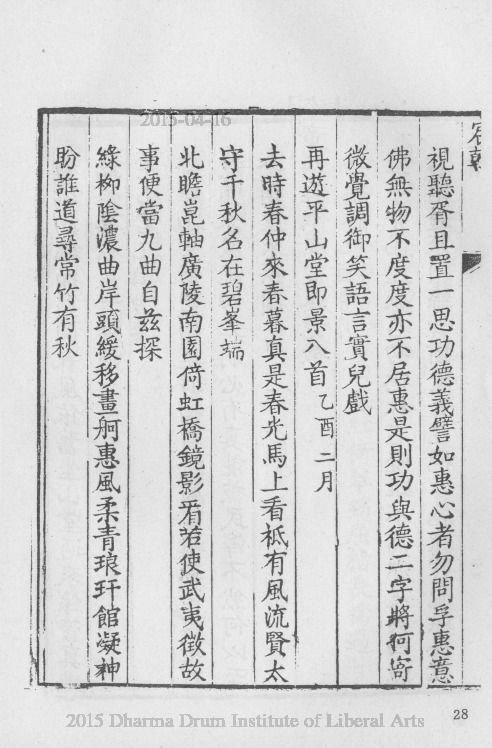 宸翰
視聽胥且置一思功德義譬如惠心者勿問孚惠意
佛無物不度度亦不居惠是則功與德二字將何寄
微覺調御笑語言實兒戲
再遊平山堂即景八首乙酉二月
去時春仲來春暮真是春光馬上看祗有風流賢太
守千秋名在碧峯端
北瞻崑軸廣陵南園倚虹橋鏡影涵若使武夷徵故
事便當九曲自茲探
綠柳陰濃曲岸頭緩移畫舸惠風柔青琅玕館凝神
盼誰道尋常竹有秋
2015-04-16
2015 Dharma Drum Institute of Liberal Arts
28